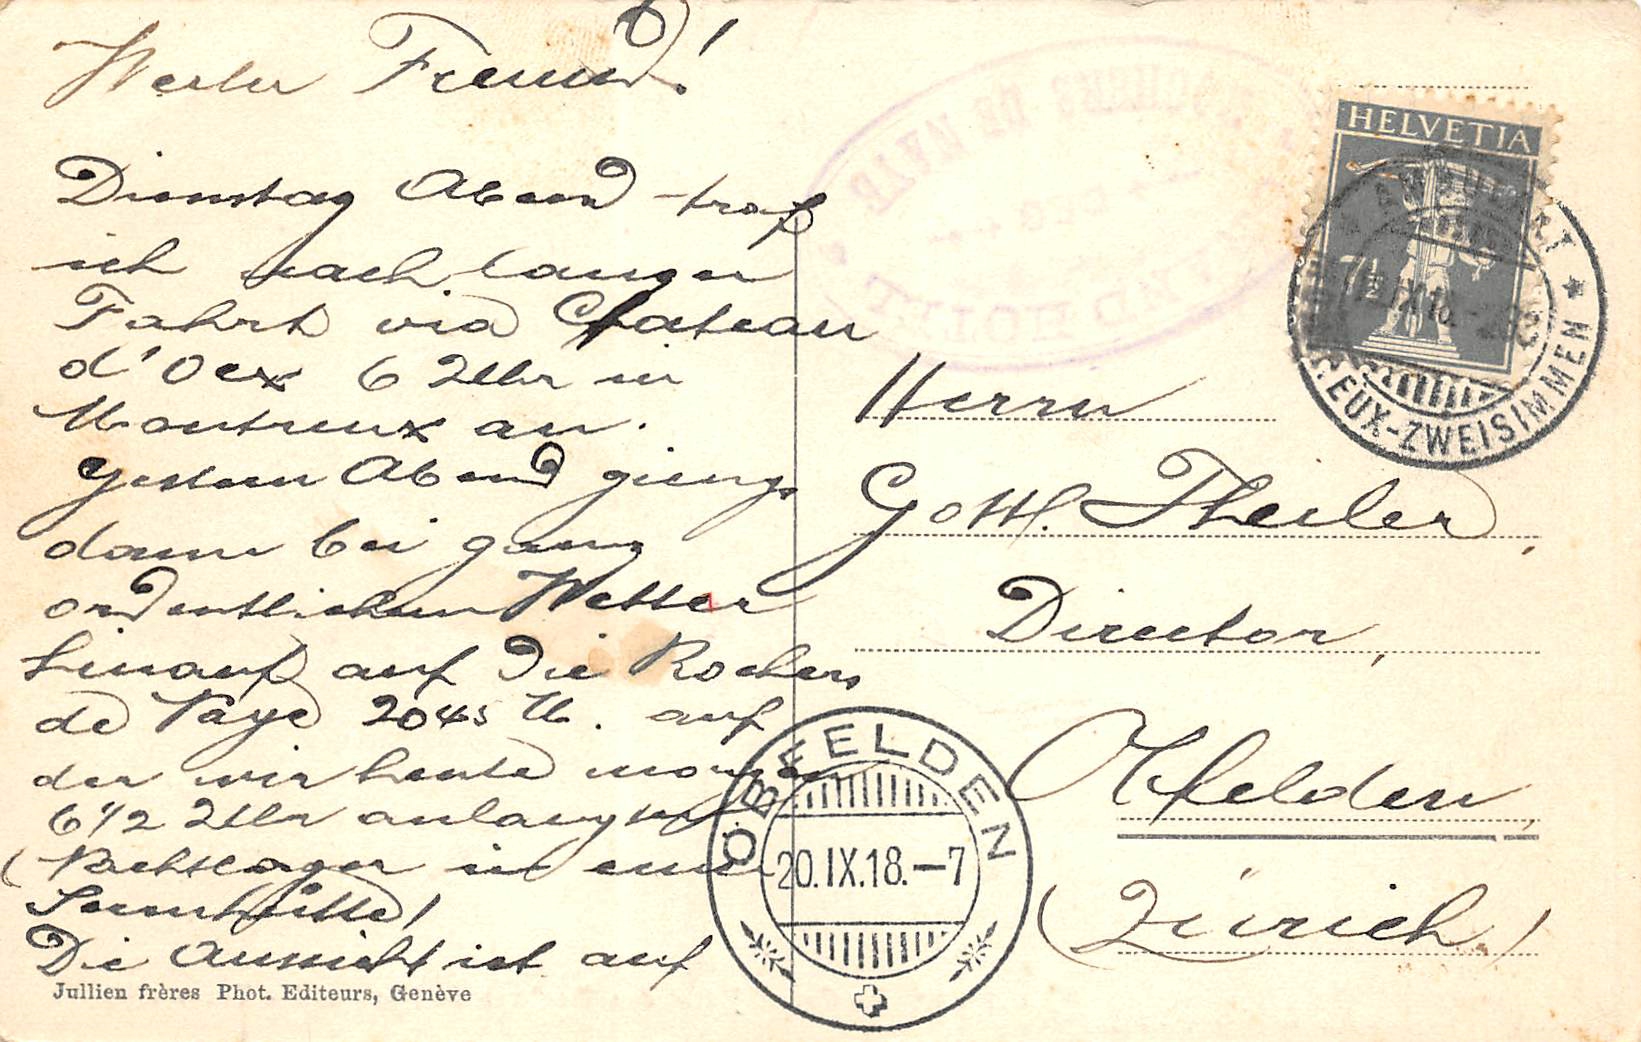 Werter Freund!
Dienstag Abend traf
ich nach langer
Fahrt via Chateau
d'Oex 6 Uhr in
Montreux an.
Gestern Abend giengs
dann bei ganz
ordentlichem Wetter
hinauf auf die Rochers
de Naye 2045 M. auf
der wir heute morgen
6 1/2 Uhr anlangten
(Nachtlager in einer
Sennhütte)
Die Aussicht ist auf
Jullien frères Phot. Editeurs, Genève
ROCHERS DE NAYE
HELVETIA
7½
AMBULANT
IX.18.
REUX-ZWEISIMMEN
Herrn
Gottl. Theiler,
Director,
Obfelden,
(Zürich.)
OBFELDEN
20.IX.18.–7